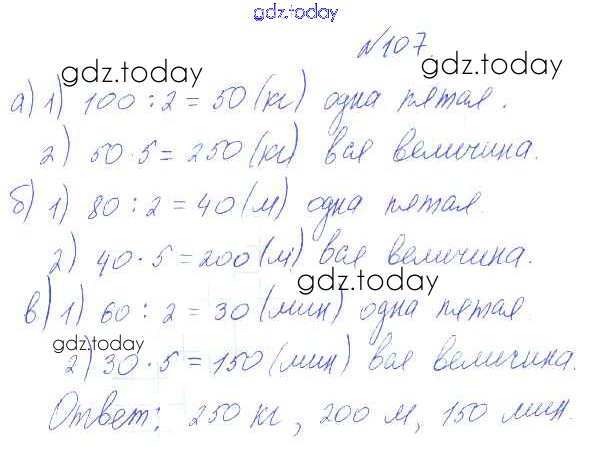 gdz.today
№107.
gdz.today
а) 1) 100 : 2 = 50 (кг) одна пятая.
2) 50 · 5 = 250 (кг) вся величина.
б) 1) 80 : 2 = 40 (м) одна пятая.
2) 40 · 5 = 200 (м) вся величина.
gdz.today
в) 1) 60 : 2 = 30 (мин) одна пятая
gdz.today
2) 30 · 5 = 150 (мин) вся величина.
Ответ: 250 кг, 200 м, 150 мин.